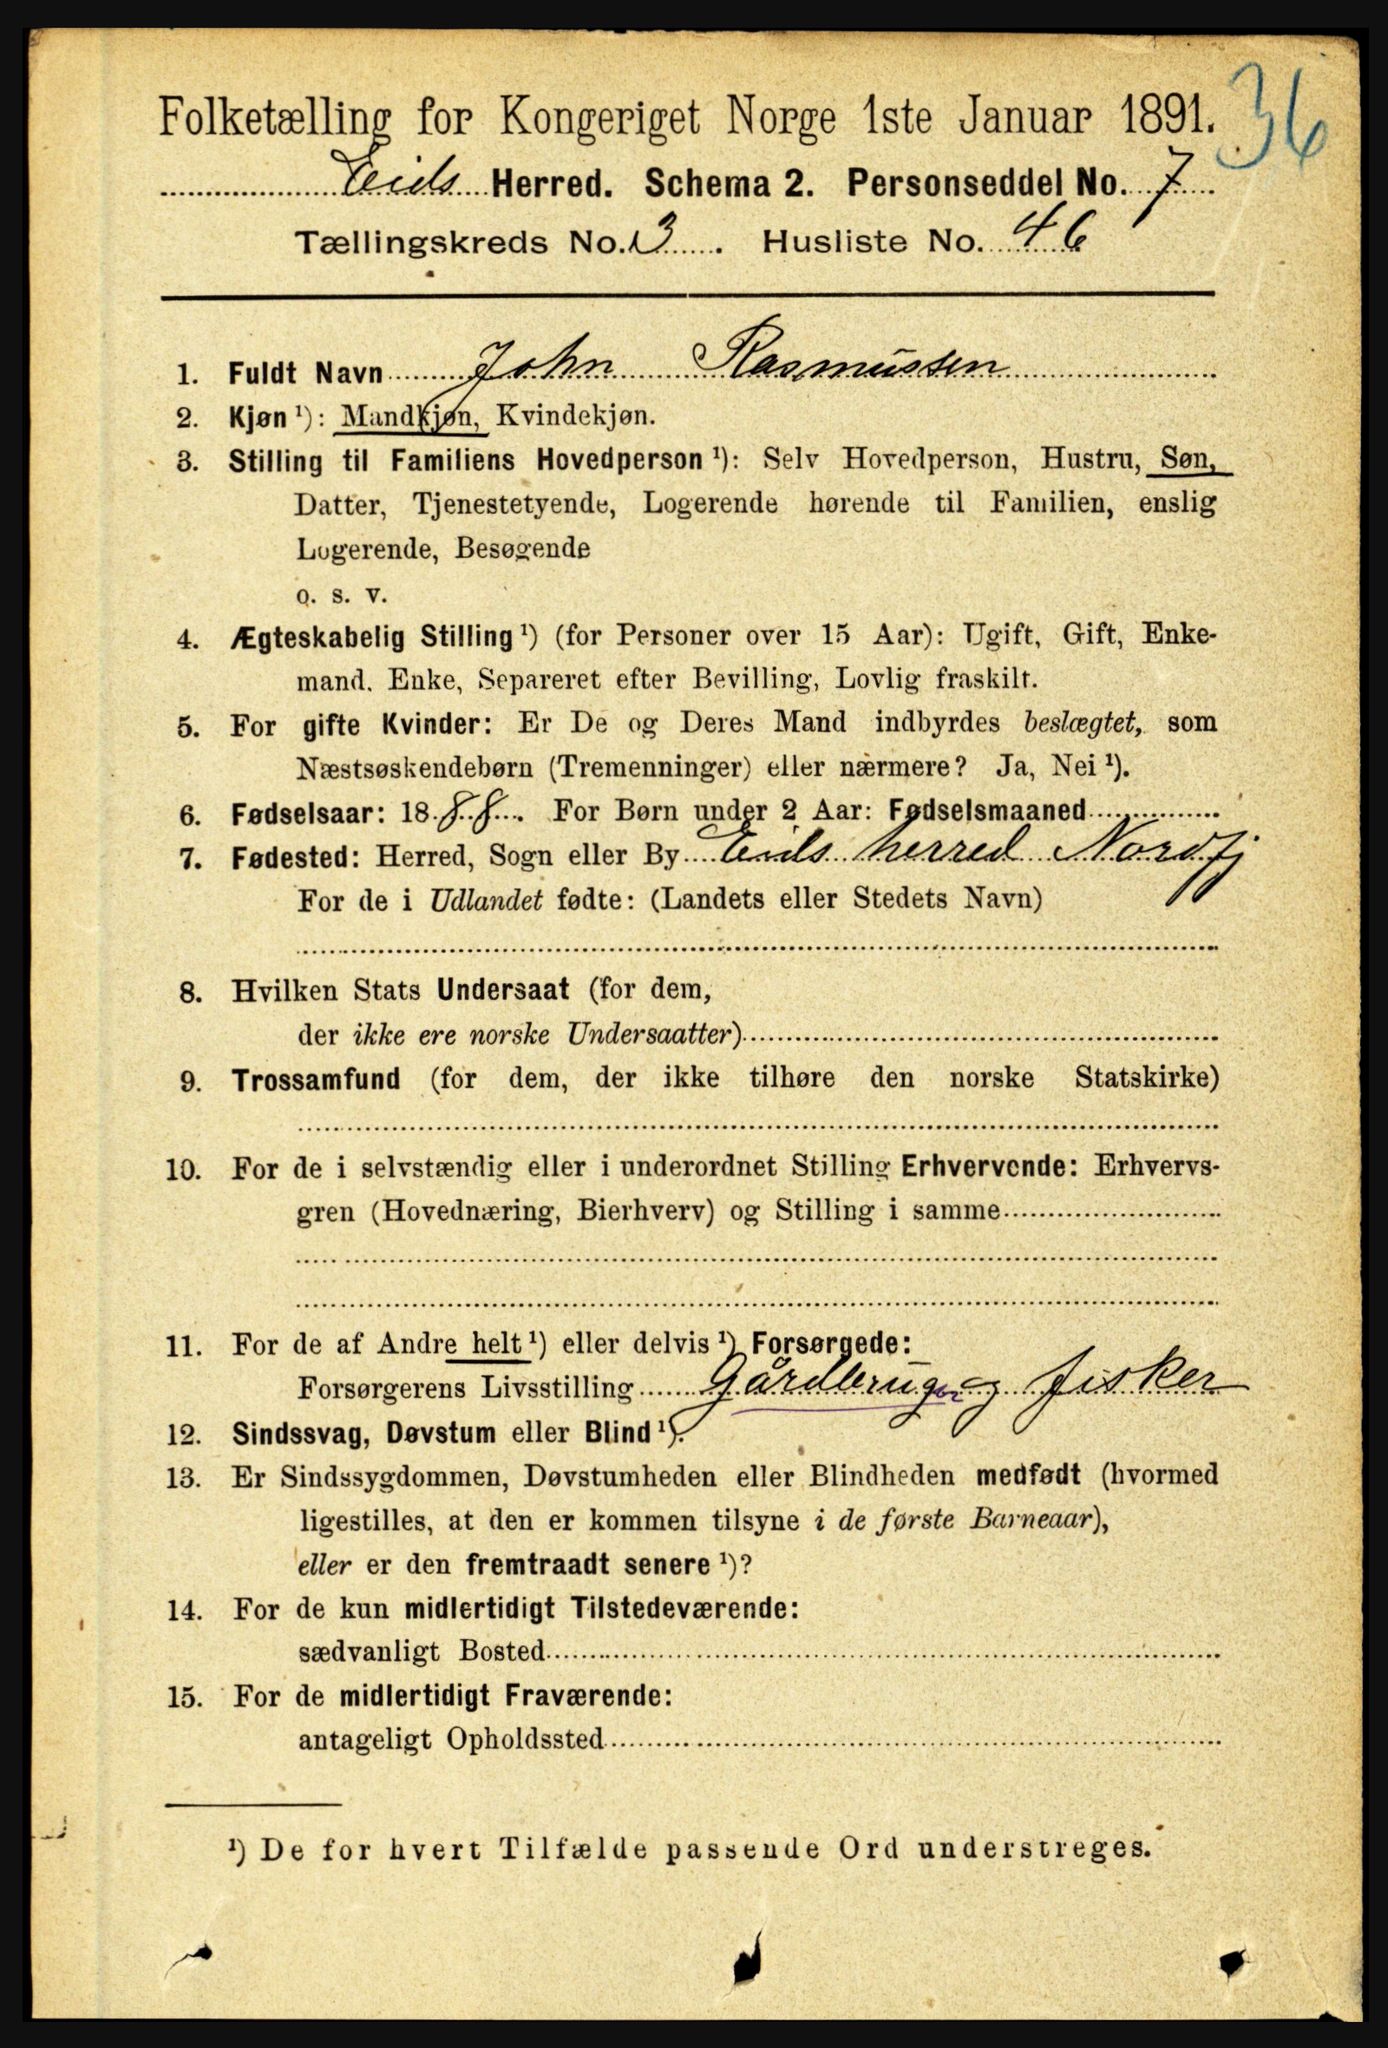 36
Folketælling for Kongeriget Norge 1ste Januar 1891.
Eids Herred. Schema 2. Personseddel No. 7
Tællingskreds No. 3. Husliste No. 46
1. Fuldt Navn John Rasmussen
2. Kjøn ¹): Mandkjøn, Kvindekjøn.
3. Stilling til Familiens Hovedperson ¹): Selv Hovedperson, Hustru, Søn,
Datter, Tjenestetyende, Logerende hørende til Familien, enslig
Logerende, Besøgende
o. s. v.
4. Ægteskabelig Stilling ¹) (for Personer over 15 Aar): Ugift, Gift, Enke-
mand, Enke, Separeret efter Bevilling, Lovlig fraskilt.
5. For gifte Kvinder: Er De og Deres Mand indbyrdes beslægtet, som
Næstsøskendebørn (Tremenninger) eller nærmere? Ja, Nei ¹).
6. Fødselsaar: 1888. For Børn under 2 Aar: Fødselsmaaned
7. Fødested: Herred, Sogn eller By Eids herred Nordfj
For de i Udlandet fødte: (Landets eller Stedets Navn)
8. Hvilken Stats Undersaat (for dem,
der ikke ere norske Undersaatter)
9. Trossamfund (for dem, der ikke tilhøre den norske Statskirke)
10. For de i selvstændig eller i underordnet Stilling Erhvervende: Erhvervs-
gren (Hovednæring, Bierhverv) og Stilling i samme
11. For de af Andre helt ¹) eller delvis ¹) Forsørgede:
Forsørgerens Livsstilling Gårdbruger og fisker
12. Sindssvag, Døvstum eller Blind ¹).
13. Er Sindssygdommen, Døvstumheden eller Blindheden medfødt (hvormed
ligestilles, at den er kommen tilsyne i de første Barneaar),
eller er den fremtraadt senere ¹)?
14. For de kun midlertidigt Tilstedeværende:
sædvanligt Bosted
15. For de midlertidigt Fraværende:
antageligt Opholdssted
¹) De for hvert Tilfælde passende Ord understreges.